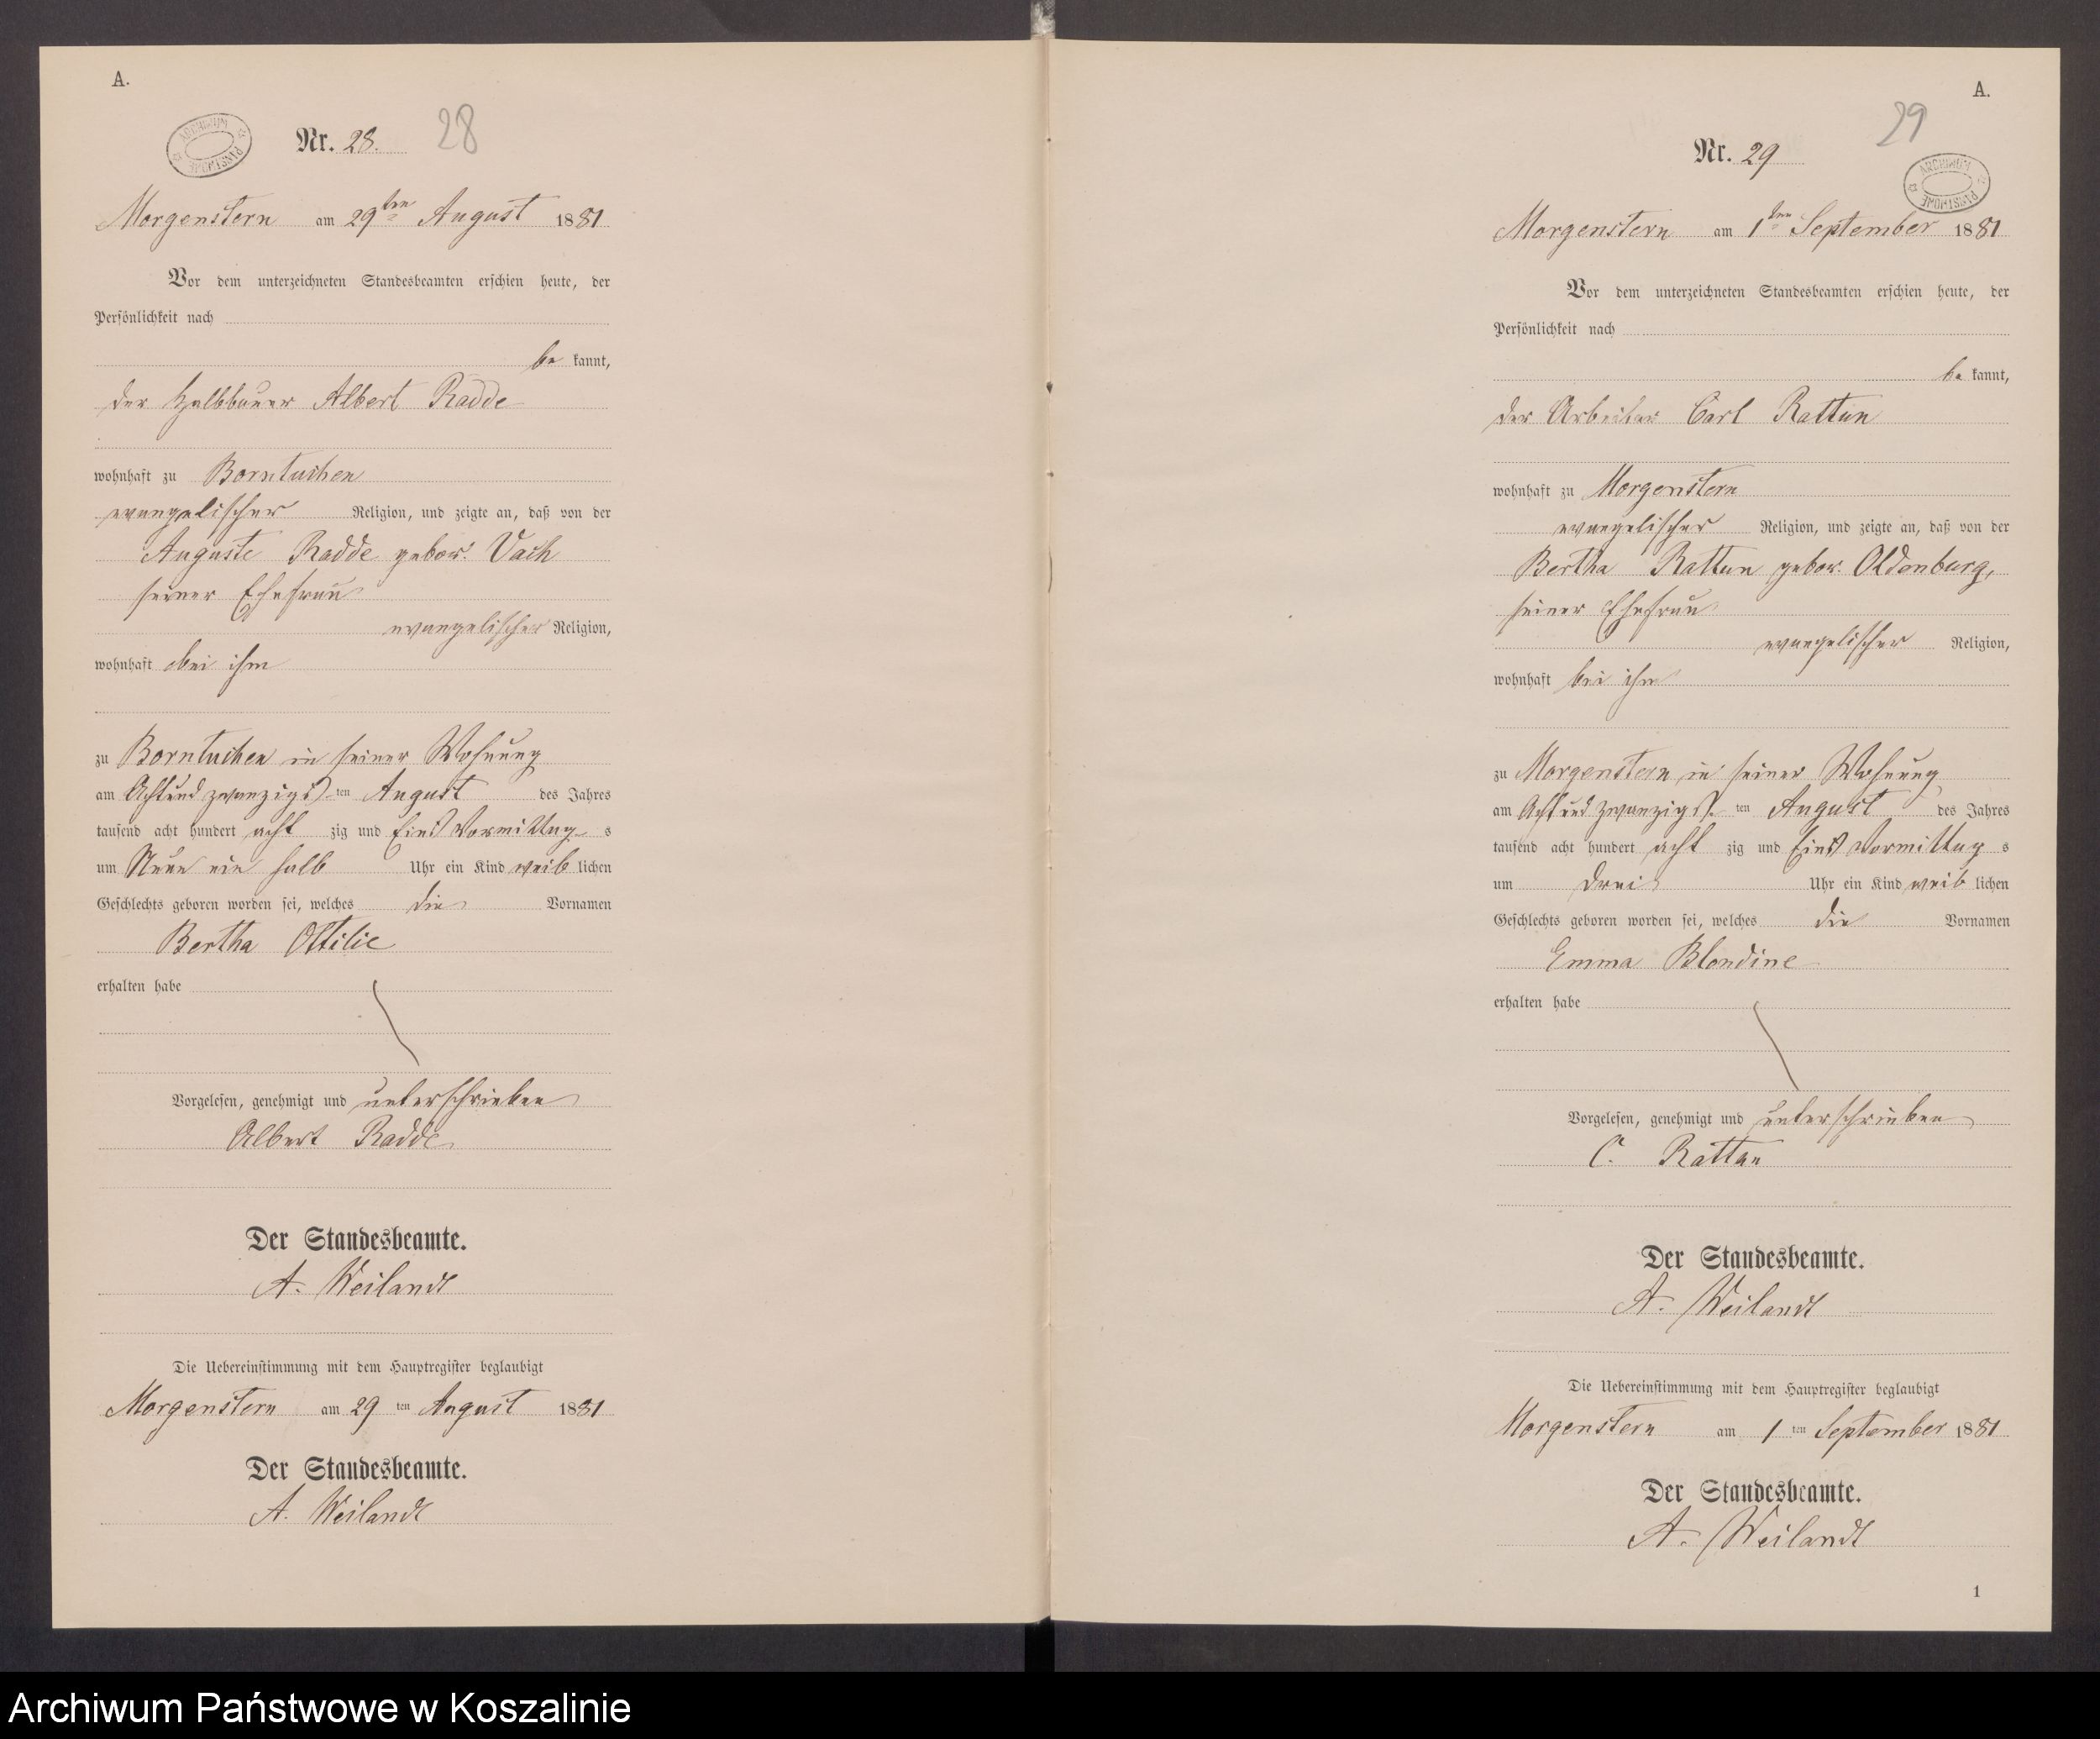 A.
ARCHIWUM PAŃSTWOWE
Nr. 28.
28
Morgenstern am 29ten August 1881
Vor dem unterzeichneten Standesbeamten erschien heute, der
Persönlichkeit nach
be kannt,
der Halbbauer Albert Radde
wohnhaft zu Borntuchen
evangelischer Religion, und zeigte an, daß von der
Auguste Radde gebor. Vach
seiner Ehefrau
evangelischer Religion,
wohnhaft bei ihm
zu Borntuchen in seiner Wohnung
am Achtundzwanzigs ten August des Jahres
tausend acht hundert acht zig und Eins Vormittag s
um Neun ein halb Uhr ein Kind weib lichen
Geschlechts geboren worden sei, welches die Vornamen
Bertha Ottilie
erhalten habe
Vorgelesen, genehmigt und unterschrieben
Albert Radde
Der Standesbeamte.
A. Weilandt
Die Uebereinstimmung mit dem Hauptregister beglaubigt
Morgenstern am 29 ten August 1881
Der Standesbeamte.
A. Weilandt
A.
29
Nr. 29
ARCHIWUM PAŃSTWOWE
Morgenstern am 1ten September 1881
Vor dem unterzeichneten Standesbeamten erschien heute, der
Persönlichkeit nach
be kannt,
der Arbeiter Carl Rattun
wohnhaft zu Morgenstern
evangelischer Religion, und zeigte an, daß von der
Bertha Rattun gebor. Oldenburg,
seiner Ehefrau
evangelischer Religion,
wohnhaft bei ihm
zu Morgenstern in seiner Wohnung
am Achtundzwanzigs ten August des Jahres
tausend acht hundert acht zig und Eins Vormittag s
um drei Uhr ein Kind weib lichen
Geschlechts geboren worden sei, welches die Vornamen
Emma Blondine
erhalten habe
Vorgelesen, genehmigt und unterschrieben
C. Rattun
Der Standesbeamte.
A. Weilandt
Die Uebereinstimmung mit dem Hauptregister beglaubigt
Morgenstern am 1 ten September 1881
Der Standesbeamte.
A. Weilandt
1
Archiwum Państwowe w Koszalinie